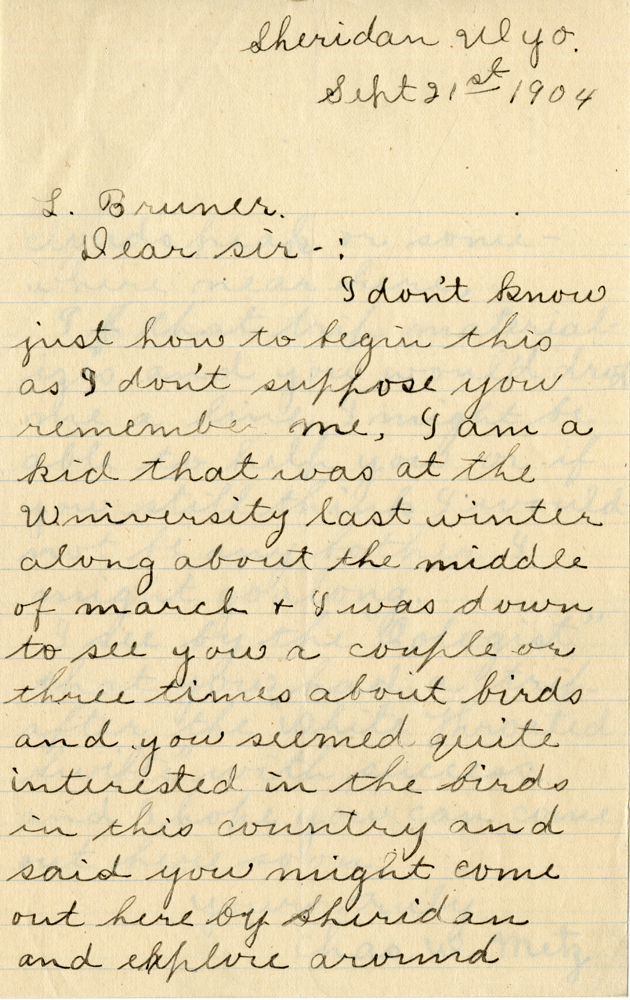 Sheridan Wyo.
Sept 21st 1904
L. Bruner.
Dear sir-:
I don't know
just how to begin this
as I don't suppose you
remember me, I am a
kid that was at the
University last winter
along about the middle
of march + I was down
to see you a couple or
three times about birds
and you seemed quite
interested in the birds
in this country and
said you might come
out here by Sheridan
and explore around